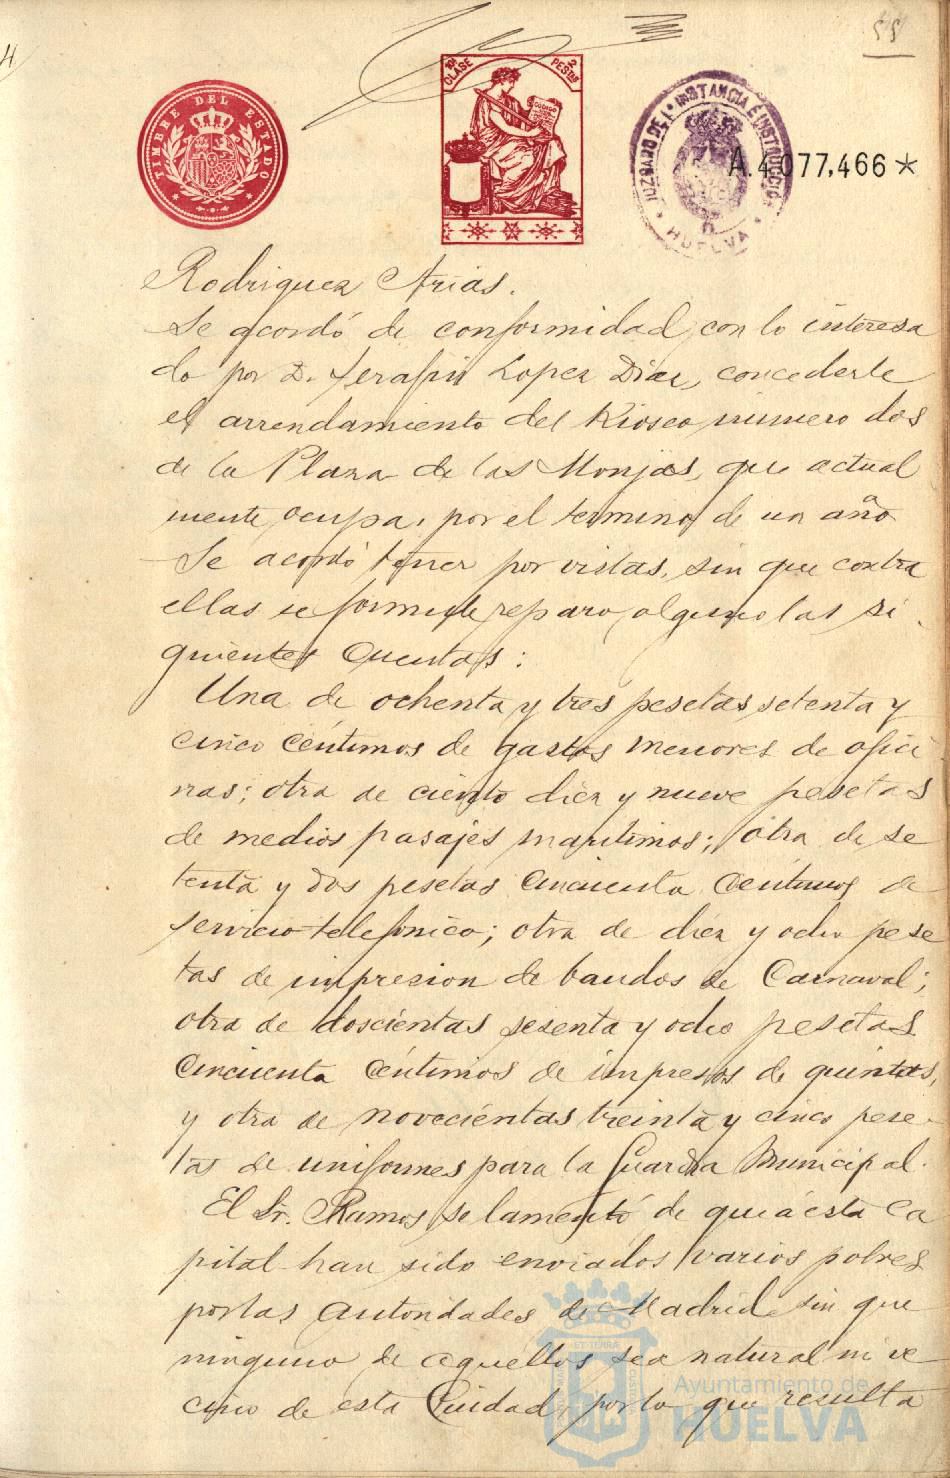 55
TIMBRE DEL ESTADO
10ª CLASE 2 PESTAS
CODIGO
JUZGADO DE 1ª INSTANCIA E INSTRUCCION
HUELVA
A.4.077,466*
Rodriguez Arias.
Se acordó de conformidad con lo interesa
do por D. Serafin Lopez Diaz, concederle
el arrendamiento del Kiosco número dos
de la Plaza de las Monjas, que actual
mente ocupa, por el termino de un año
Se acordó tener por vistas, sin que contra
ellas se formule reparo alguno las si
guientes cuentas:
Una de ochenta y tres pesetas setenta y
cinco céntimos de gastos menores de ofici
nas; otra de ciento diez y nueve pesetas
de medios pasajes maritimos; otra de se
tenta y dos pesetas cincuenta céntimos de
servicio telefónico; otra de diez y ocho pese
tas de impresion de bandos de Carnaval;
otra de doscientas sesenta y ocho pesetas
cincuenta céntimos de impresos de quintas,
y otra de novecientas treinta y cinco pese-
tas de uniformes para la Guardia Municipal.
El Sr. Ramos se lamentó de que á esta Ca
pital han sido enviados varios pobres
por las autoridades de Madrid sin que
ninguno de aquellos sea natural ni ve
cino de esta Ciudad, por lo que resulta
Ayuntamiento de
HUELVA